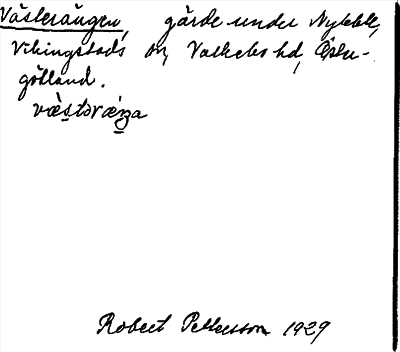 Västerängen, gärde under Nybble,
Vikingstads sn, Valkebo hd, Öster-
götland.
væ̀stəræŋa
Robert Pettersson 1929